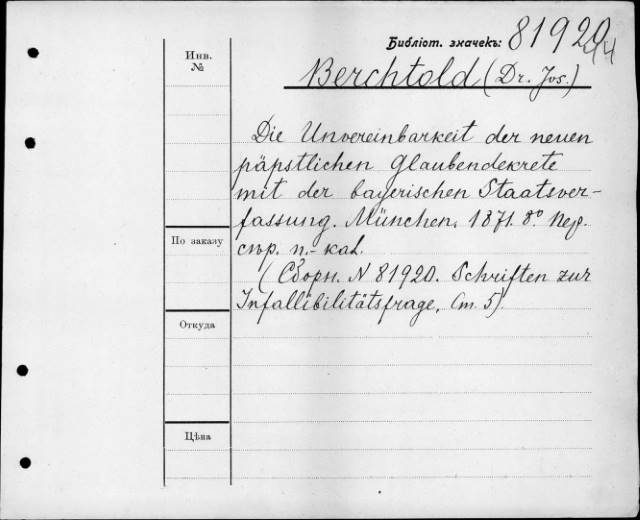 Библіот. значекъ: 81920
Инв.
№
Berchtold (Dr. Jos.)
Die Unvereinbarkeit der neuen
päpstlichen Glaubendekrete
mit der bayerischen Staatsver-
fassung. München. 1871. 8º. Пер.
По заказу
(Сборн. N 81920. Schriften zur
Infallibilitätsfrage, Ст. 5).
Откуда
Цѣна